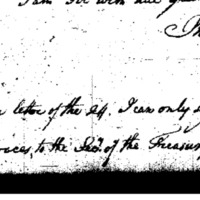 I am Sir with due
Th
letter of the 24. I can only
to the Sec. of the Treasury